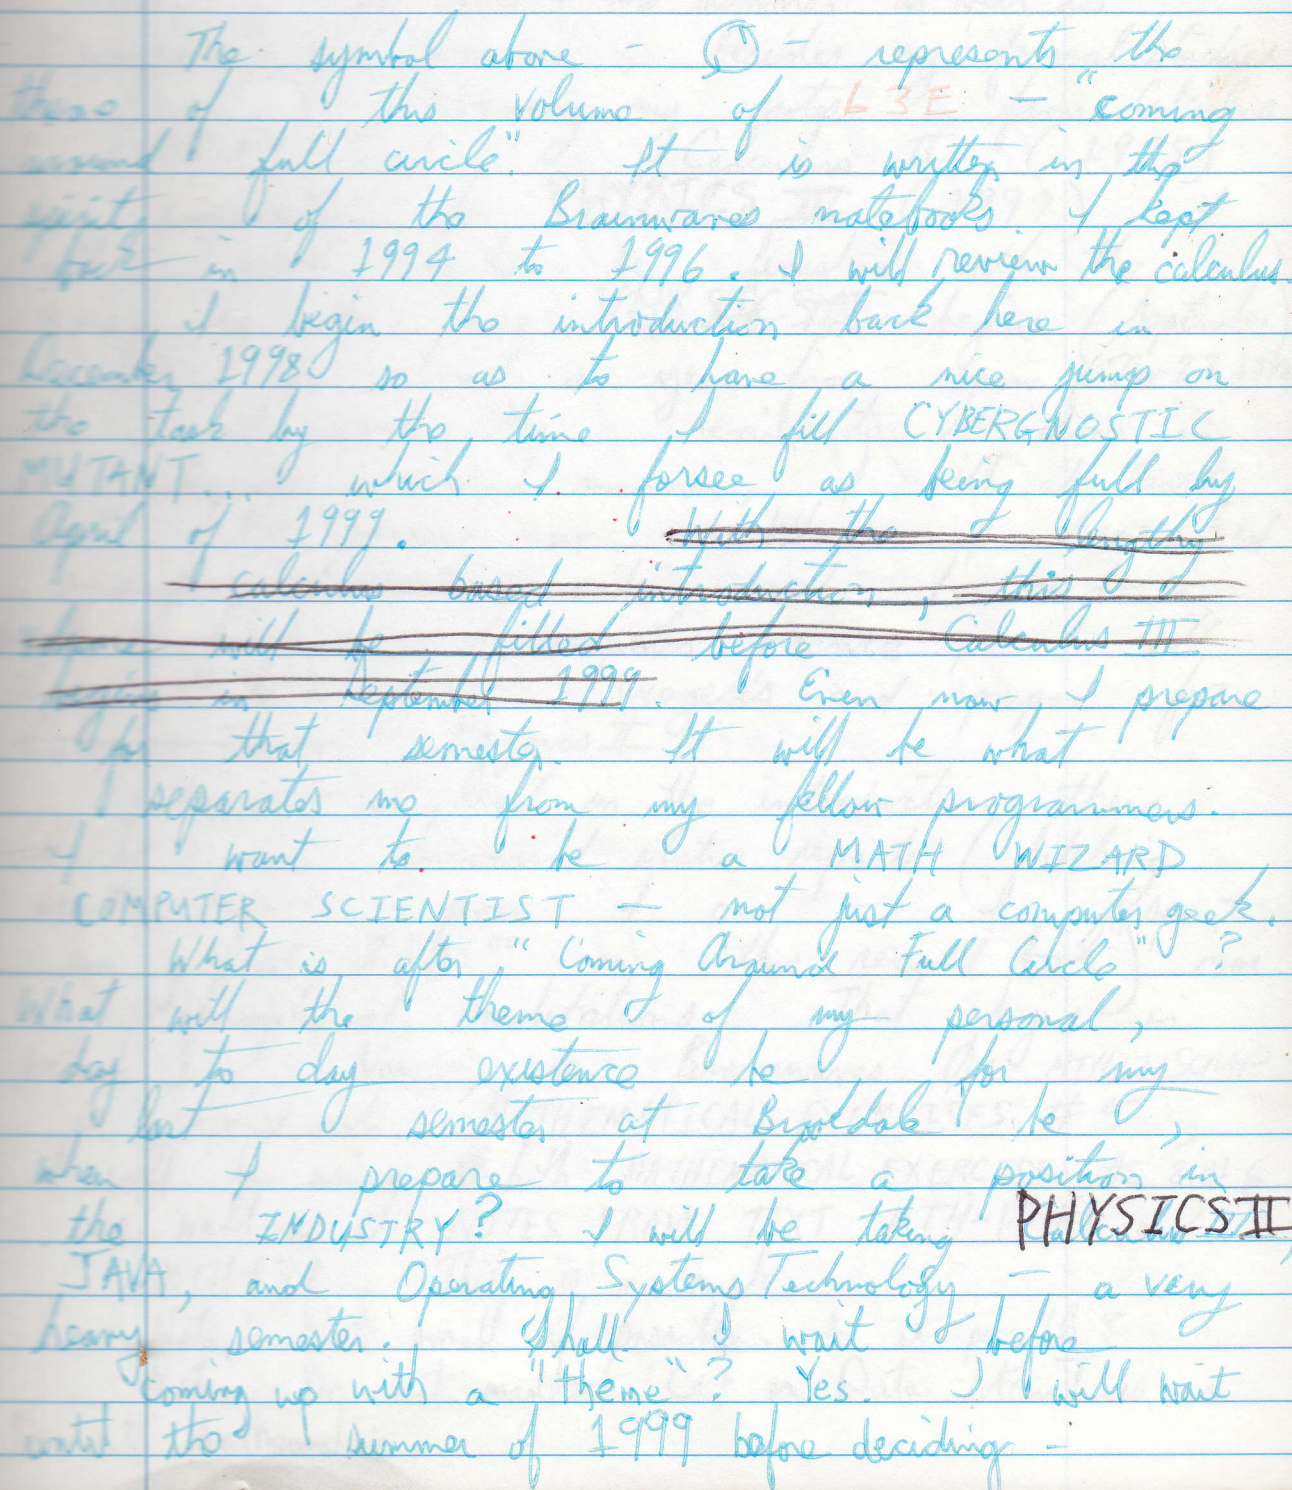 The symbol above - - represents the
theme of this volume of 63E - "coming
around full circle". It is written in the
spirit of the Brainwaves notebooks I kept
back in 1994 to 1996. I will review the calculus.
I begin the introduction back here in
December 1998 so as to have a nice jump on
the task by the time I fill CYBERGNOSTIC
MUTANT... which I forsee as being full by
April of 1999. With the lengthy
calculus based introduction, this
will be filled before Calculus III
begins in September 1999. Even now I prepare
for that semester. It will be what
separates me from my fellow programmers.
I want to be a MATH WIZARD
COMPUTER SCIENTIST - not just a computer geek.
What is after "Coming Around Full Circle"?
What will the theme of my personal,
day to day existence be for my
last semester at Brookdale be,
when I prepare to take a position in
the INDUSTRY? I will be taking PHYSICS II
JAVA, and Operating Systems Technology - a very
heavy semester. Shall I wait before
coming up with a "theme"? Yes. I will wait
until the summer of 1999 before deciding -